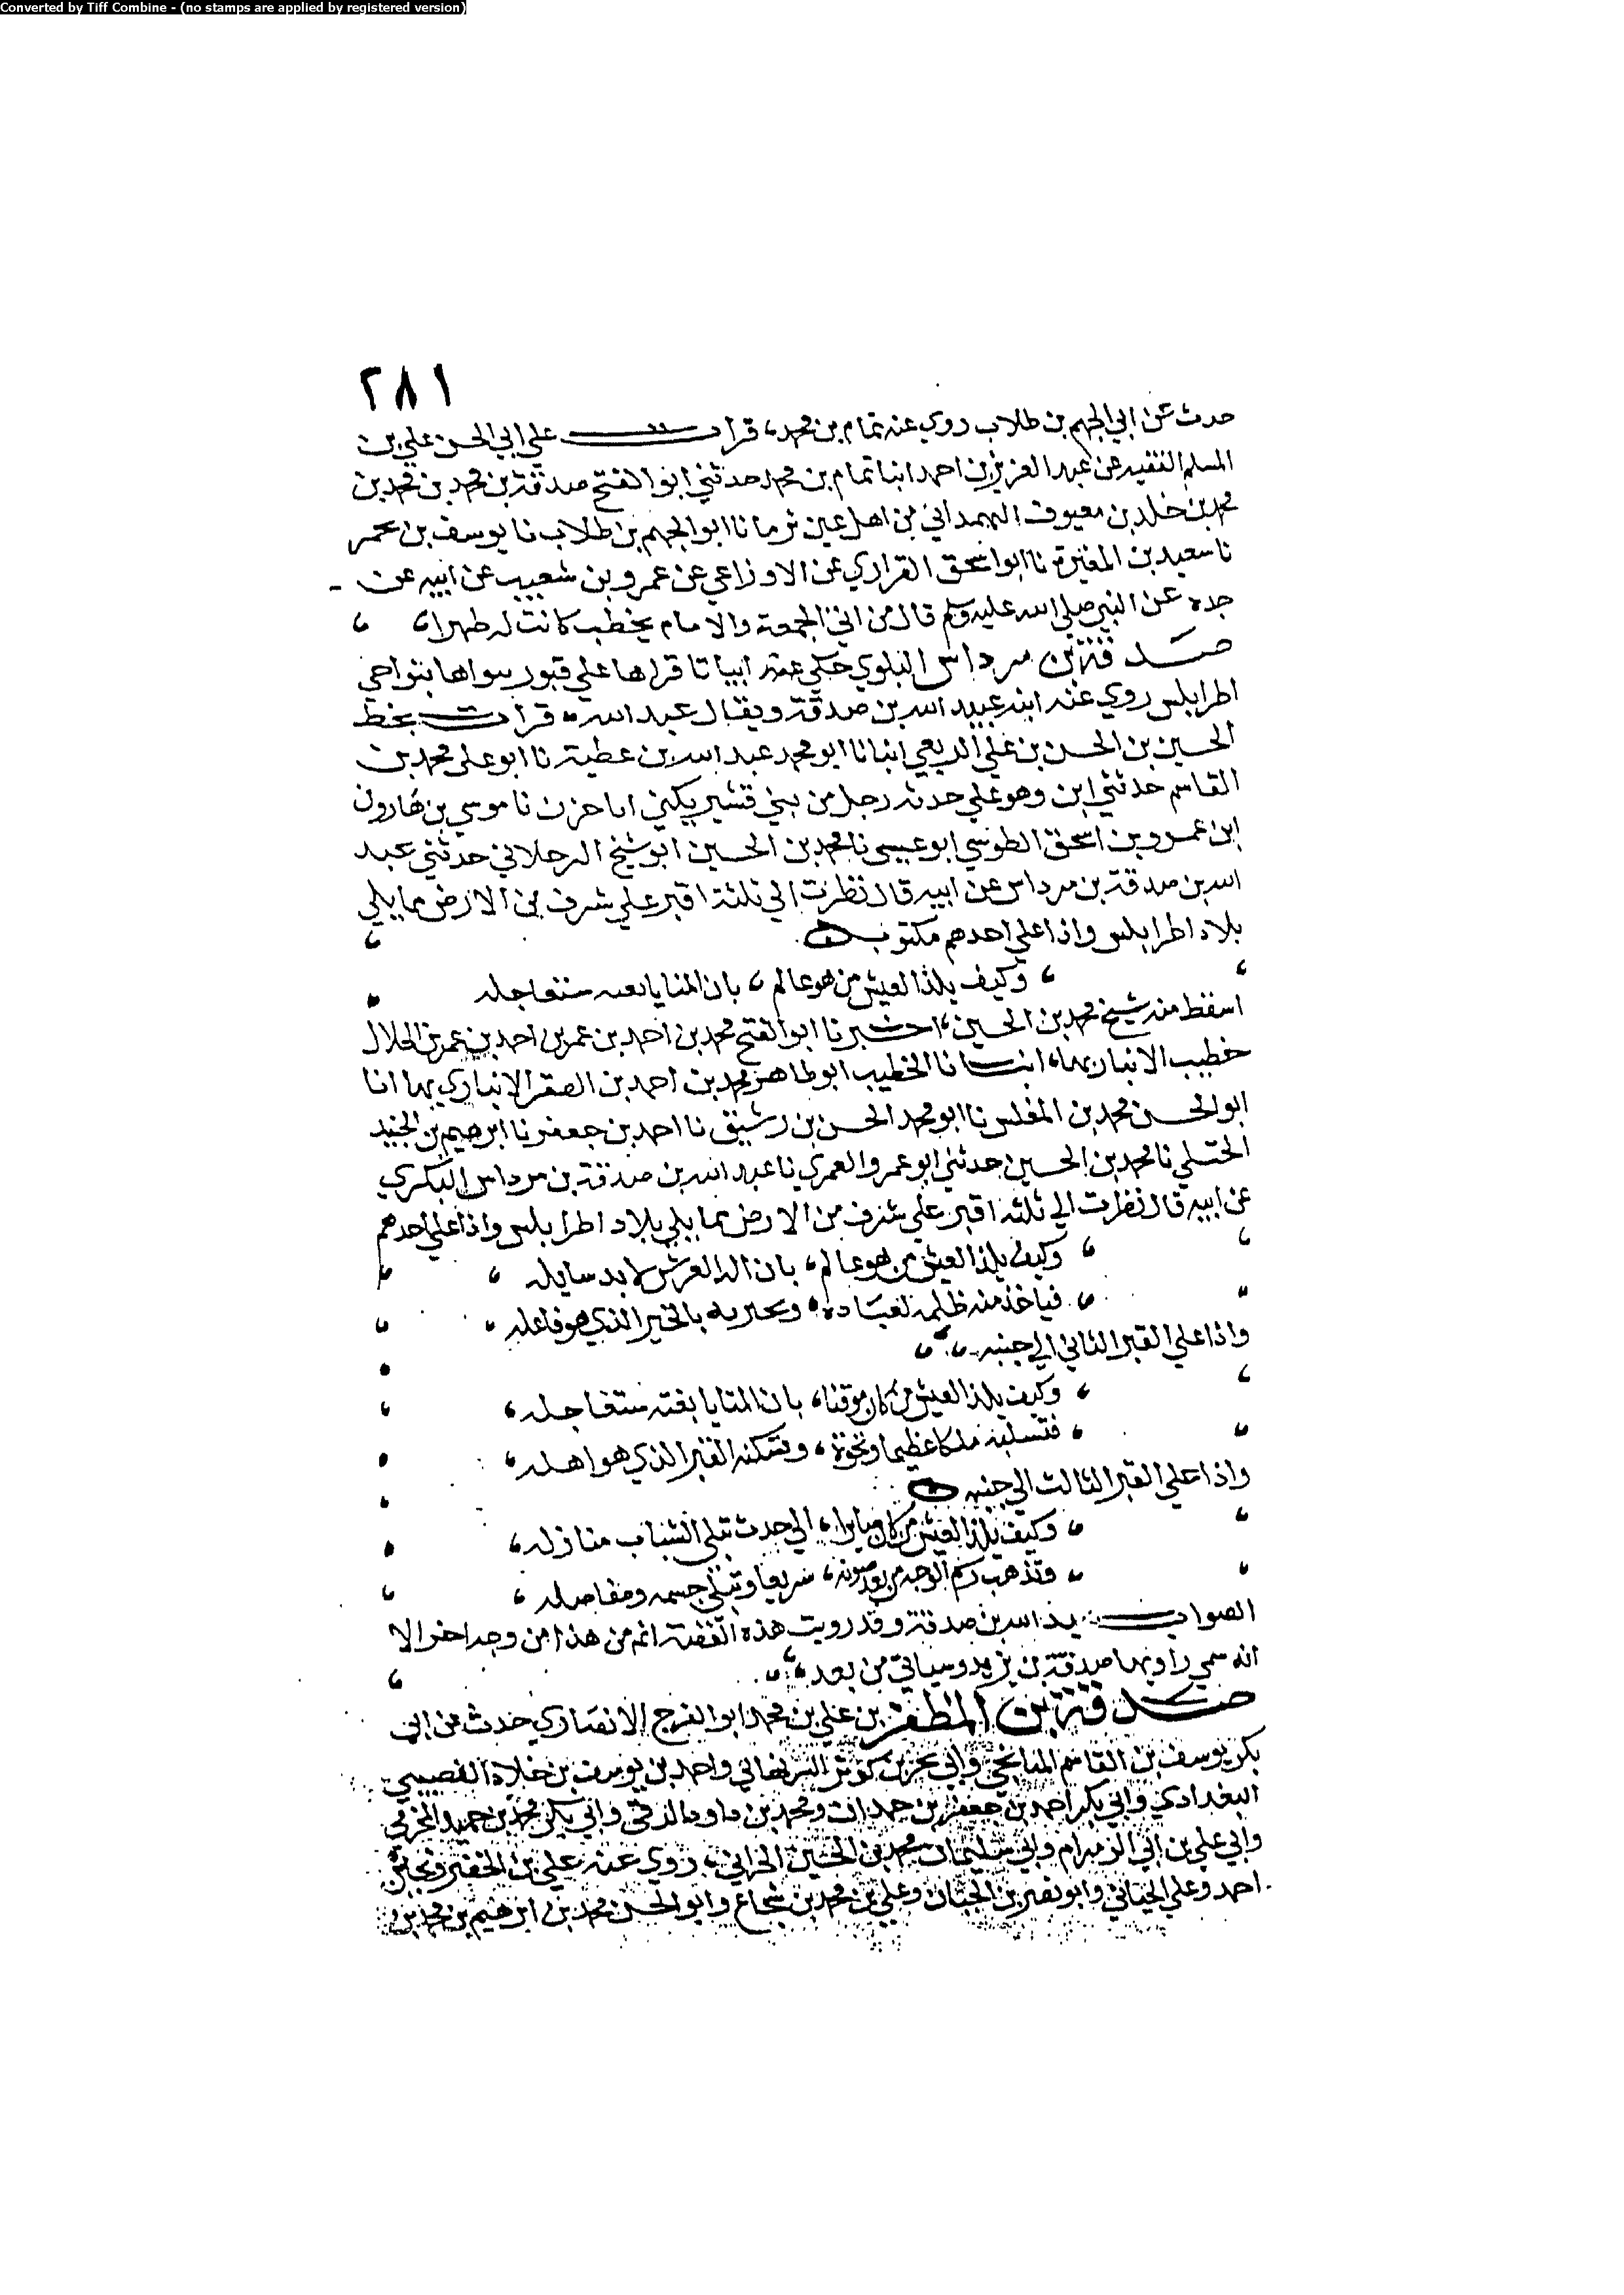 Converted by Tiff Combine - (no stamps are applied by registered version)
٢٨١
حدث عن ابي الجهم بن طلاب روي عنه تمام بن محمد، قرات علي ابي الحسن علي بن
المسلم الفقيه عن عبد العزيز بن احمد انبا تمام بن محمد حدثني ابو الفتح صدقة بن محمد بن محمد بن
محمد بن خلد بن معيوف الهمداني من اهل عين ثرما نا ابو الجهم بن طلاب نا يوسف بن عمر
نا سعيد بن المغيرة نا ابو اسحق الفزاري عن الاوزاعي عن عمرو بن شعيب عن ابيه عن
جده عن النبي صلي الله عليه وسلم قال من اتي الجمعة والامام يخطب كانت له ظهرا،
صدقة بن مرداس البلوي حكي عنه ابياتا قراها علي قبور بنواحي
اطرابلس روي عنه ابنه عبيد الله بن صدقة ويقال عبد الله، قرات بخط
الحسين بن الحسن بن علي الربعي انبانا ابو محمد عبد الله بن عطية نا ابو علي محمد بن
القاسم حدثني ابن وهو علي حدثه رجل من بني قشير يكني ابا حزن نا موسي بن هارون
ابن عمرو بن اسحق الطوسي ابو عيسي نا محمد بن الحسين ابو شيخ البرجلاني حدثني عبد
الله بن صدقة بن مرداس عن ابيه قال نظرت الي ثلثة اقبر علي شرف من الارض مما يلي
بلاد اطرابلس واذا علي احدهم مكتوب
وكيف يلذ العيش من هو عالم، بان المنايا بغته ستعاجله
اسقط منه شيخ محمد بن الحسين، اخبرنا ابو الفتح محمد بن احمد بن عمر بن احمد بن عمر بن الخلال
خطيب الانبار بها، انبانا الخطيب ابو طاهر محمد بن احمد بن الصقر الانباري بها انا
ابو الحسن محمد بن المغلس نا ابو محمد الحسن بن رشيق نا احمد بن جعفر نا ابرهيم بن الجنيد
الختلي نا محمد بن الحسين حدثني ابو عمرو العمري نا عبد الله بن صدقة بن مرداس البكري
عن ابيه قال نظرت الي ثلثه اقبر علي شرف من الارض مما يلي بلاد اطرابلس واذا علي احدهم
وكيف يلذ العيش من هو عالم، بان اله العرش لا بد سايله
فياخذ منه ظلمه لعباده، ويجزيه بالخير الذي هو فاعله،
واذا علي القبر الثاني الي جنبه
وكيف يلذ العيش من كان موقنا، بان المنايا بغته ستعاجله،
فتسلبه ملكا عظيما ونخوة، وتسكنه القبر الذي هو اهله،
واذا علي القبر الثالث الي جنبه
وكيف يلذ العيش من كان صايرا، الي جدث تبلي الشباب منازله،
وتذهب الوجه من بعد صونه، سريعا وتبلي جسمه ومفاصله،
الصواب الله بن صدقة وقد رويت هذه القصة اتم من هذا من وجه اخر الا
انه سمي راويها صدقة بن يزيد وسياتي من بعد،
صدقة بن المظفر بن علي بن محمد ابو الفرج الانصاري حدث عن ابي
بكر يوسف بن القاسم الميانجي وابي بحر بن كوثر البربهاري واحمد بن يوسف بن خلاد النصيبي
البغدادي وابي بكر احمد بن جعفر بن حمدان ومحمد بن داود الرقي وابي بكر محمد بن حميد المخرمي
وابي علي بن ابي الزمزام وابي سليمان محمد بن الحسين الحراني، روي عنه علي بن الخضر ونجا بن
احمد وعلي الحنائي وابو نصر بن الجبان وعلي بن محمد بن شجاع وابو الحسن محمد بن ابرهيم بن محمد بن